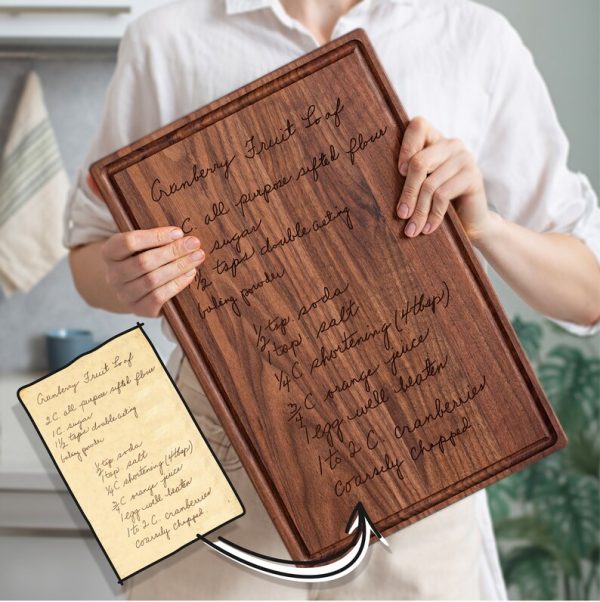 Cranberry Fruit Loaf
C. all purpose sifted flour
sugar
½ tsps double acting
baking powder
½ tsp soda
1 tsp salt
¼ C shortening (4tbsp)
¾ C orange juice
1 egg well beaten
1 to 2 C. cranberries
coarsely chopped
Cranberry Fruit Loaf
2 C. all purpose sifted flour
1 C sugar
1½ tsps double acting
baking powder
½ tsp soda
1 tsp salt
¼ C shortening (4tbsp)
¾ C orange juice
1 egg well beaten
1 to 2 C. cranberries
coarsely chopped